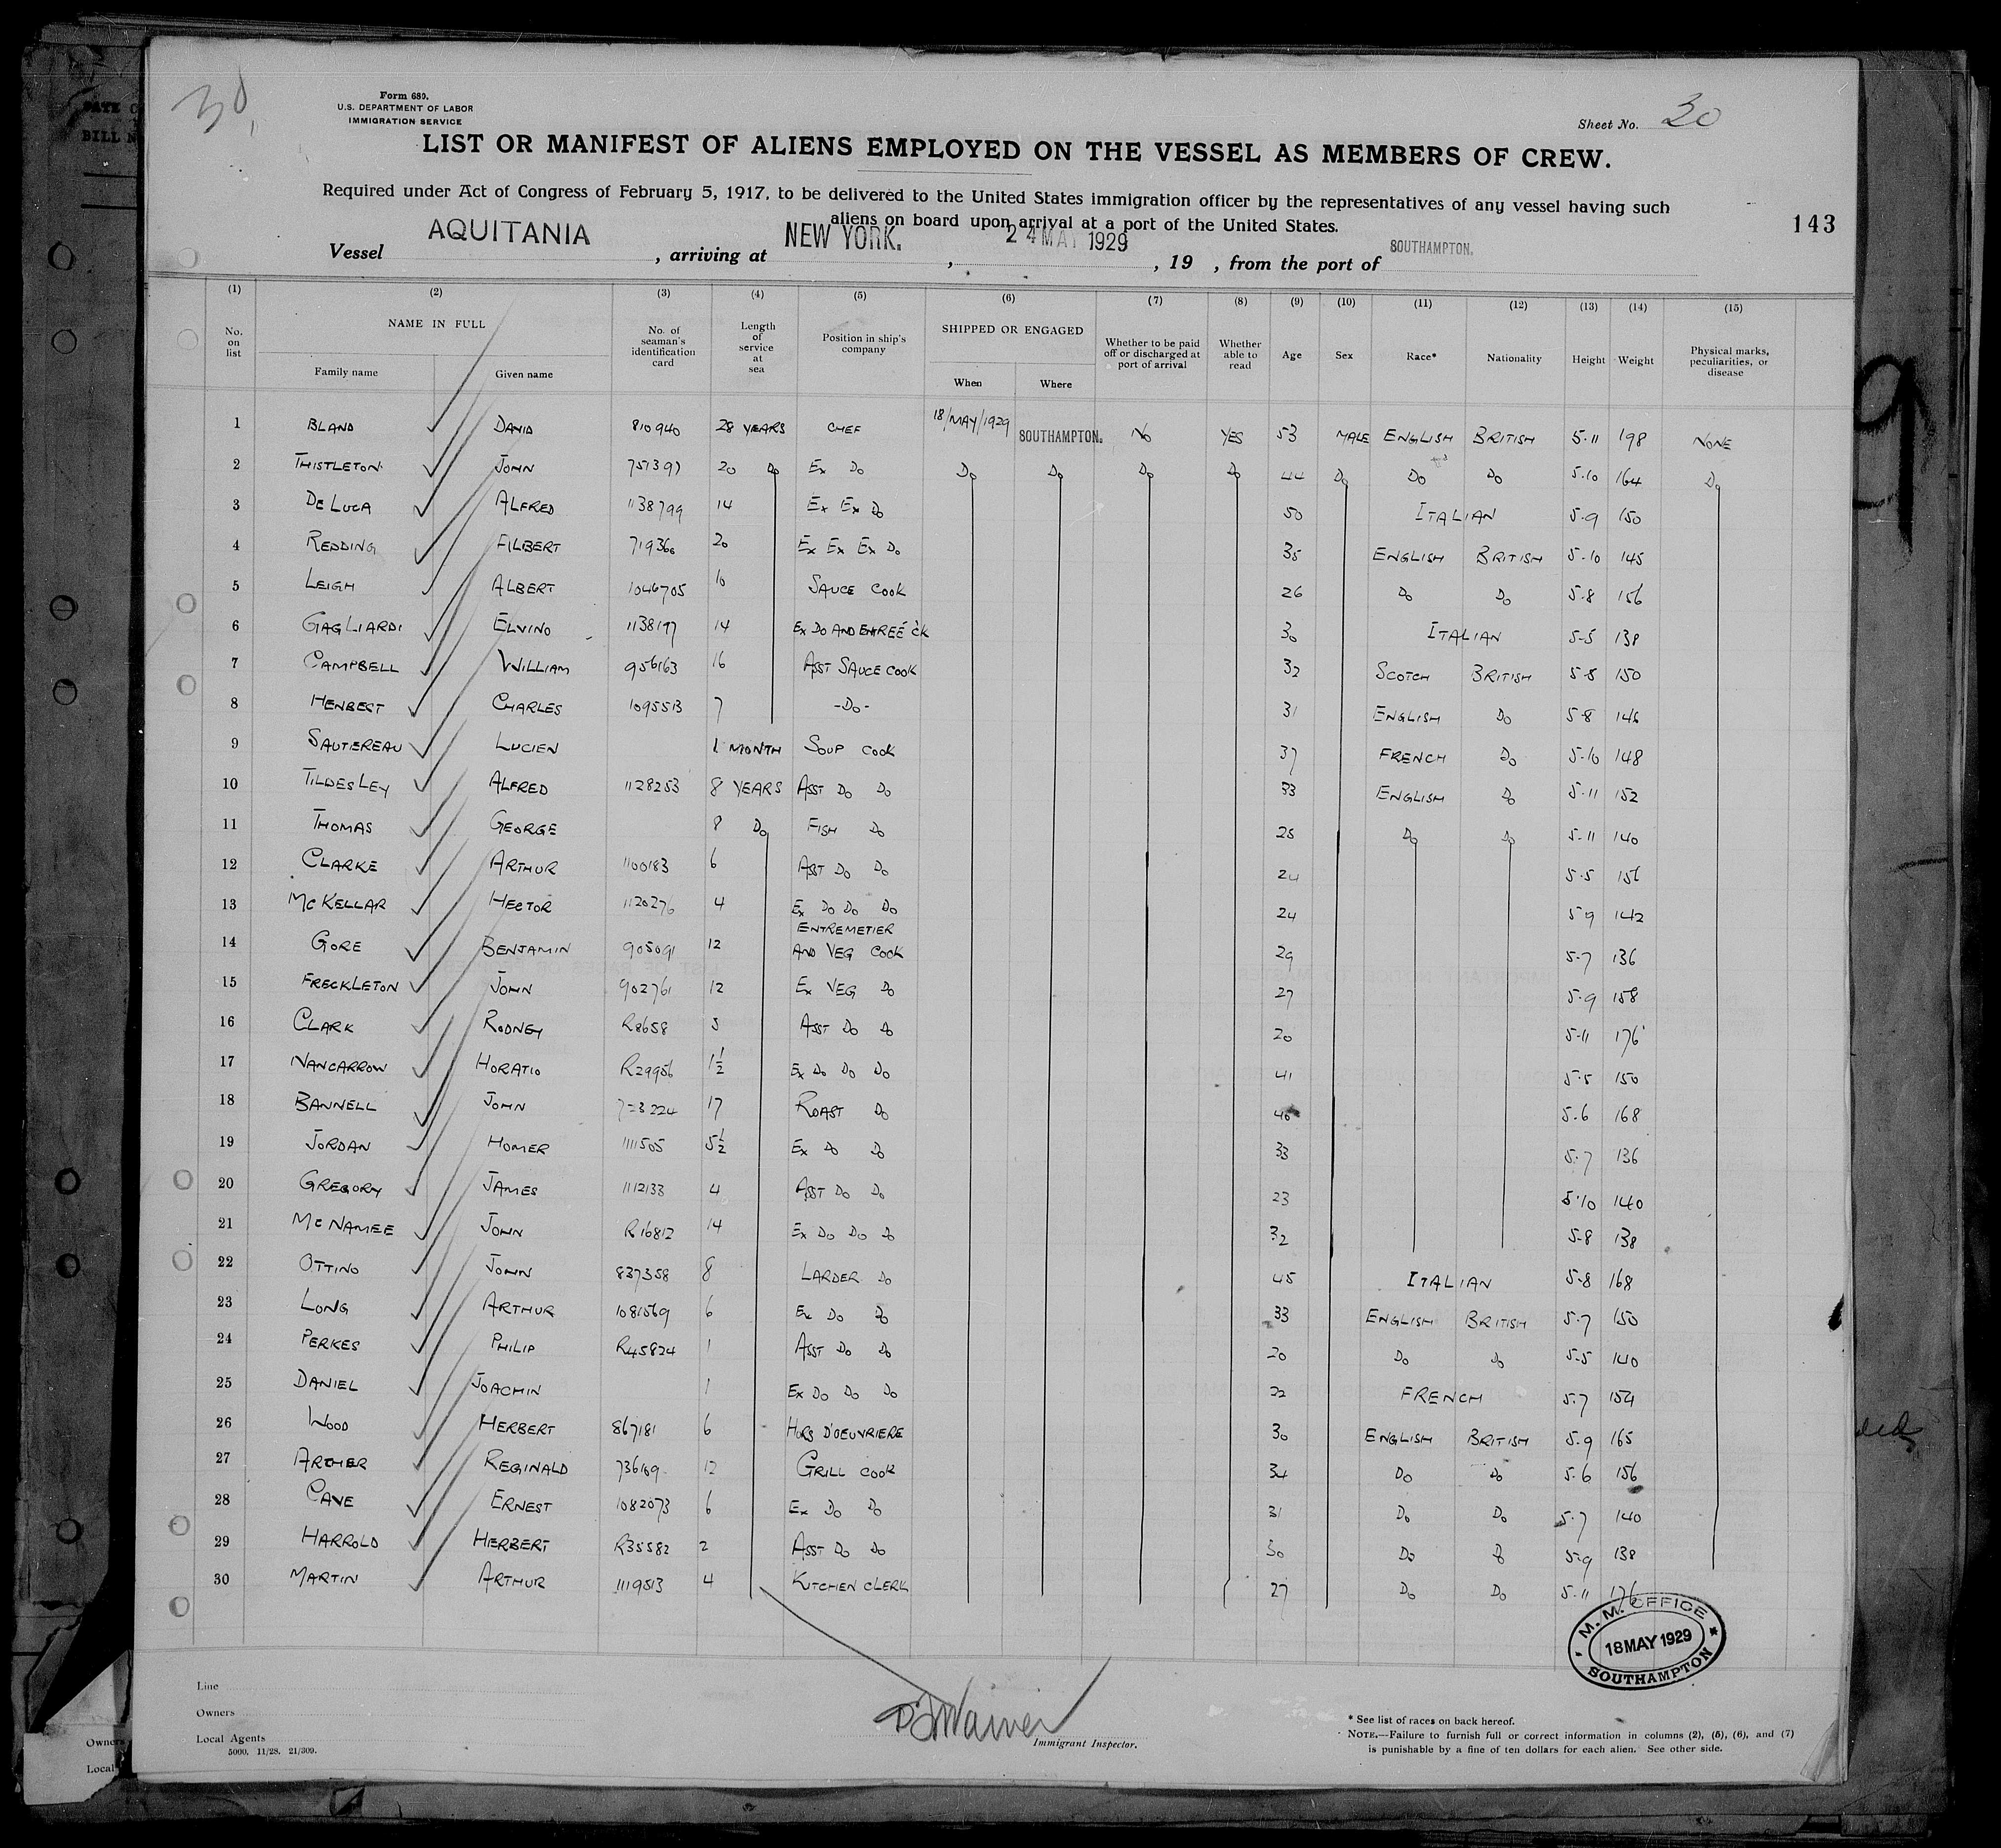 30
Form 689.
U.S. DEPARTMENT OF LABOR
IMMIGRATION SERVICE
Sheet No. 30
LIST OR MANIFEST OF ALIENS EMPLOYED ON THE VESSEL AS MEMBERS OF CREW.
Required under Act of Congress of February 5, 1917, to be delivered to the United States immigration officer by the representatives of any vessel having such
aliens on board upon arrival at a port of the United States.
143
Vessel AQUITANIA , arriving at NEW YORK. , 24 MAY 1929 , 19 , from the port of SOUTHAMPTON.
(1) (2) (3) (4) (5) (6) (7) (8) (9) (10) (11) (12) (13) (14) (15)
No. on list NAME IN FULL Family name Given name No. of seaman's identification card Length of service at sea Position in ship's company SHIPPED OR ENGAGED When Where Whether to be paid off or discharged at port of arrival Whether able to read Age Sex Race* Nationality Height Weight Physical marks, peculiarities, or disease
1 BLAND DAVID 810940 28 YEARS CHEF 18/MAY/1929 SOUTHAMPTON. NO YES 53 MALE ENGLISH BRITISH 5.11 198 NONE
2 THISTLETON JOHN 751397 20 Do Ex Do Do Do Do Do 44 Do Do Do 5.10 164 Do
3 DE LUCA ALFRED 1138799 14 Ex Ex Do 50 ITALIAN 5.9 150
4 REDDING FILBERT 719366 20 Ex Ex Ex Do 35 ENGLISH BRITISH 5.10 145
5 LEIGH ALBERT 1046705 10 SAUCE COOK 26 Do Do 5.8 156
6 GAGLIARDI ELVINO 1138197 14 Ex Do AND ENTREÉ CK 30 ITALIAN 5-5 138
7 CAMPBELL WILLIAM 956163 16 ASST SAUCE COOK 32 SCOTCH BRITISH 5-8 150
8 HENBEST CHARLES 1095513 7 -Do- 31 ENGLISH Do 5-8 146
9 SAUTEREAU LUCIEN 1 MONTH SOUP COOK 37 FRENCH Do 5-10 148
10 TILDESLEY ALFRED 1128253 8 YEARS ASST Do Do 33 ENGLISH Do 5.11 152
11 THOMAS GEORGE 8 Do FISH Do 25 Do Do 5-11 140
12 CLARKE ARTHUR 1100183 6 ASST Do Do 24 5.5 156
13 McKELLAR HECTOR 1120276 4 Ex Do Do Do 24 5 9 142
14 GORE BENJAMIN 905091 12 ENTREMETIER AND VEG COOK 29 5.7 136
15 FRECKLETON JOHN 902761 12 Ex VEG Do 27 5.9 158
16 CLARK RODNEY R8658 3 ASST Do Do 20 5-11 176
17 NANCARROW HORATIO R29956 1½ Ex Do Do Do 41 5.5 150
18 BANNELL JOHN 723224 17 ROAST Do 40 5.6 168
19 JORDAN HOMER 1111505 5½ Ex Do Do 33 5.7 136
20 GREGORY JAMES 1112133 4 ASST Do Do 23 5.10 140
21 McNAMEE JOHN R16812 14 Ex Do Do Do 32 5-8 138
22 OTTINO JOHN 837358 8 LARDER Do 45 ITALIAN 5-8 168
23 LONG ARTHUR 1081569 6 Ex Do Do 33 ENGLISH BRITISH 5.7 150
24 PERKES PHILIP R45824 1 ASST Do Do 20 Do Do 5.5 140
25 DANIEL JOACHIN 1 Ex Do Do Do 22 FRENCH 5.7 154
26 WOOD HERBERT 867181 6 HORS D'OEUVRIERE 30 ENGLISH BRITISH 5.9 165
27 ARCHER REGINALD 736109 12 GRILL COOK 34 Do Do 5.6 156
28 CAVE ERNEST 1082073 6 Ex Do Do 31 Do Do 5.7 140
29 HARROLD HERBERT R35582 2 ASST Do Do 30 Do Do 5.9 138
30 MARTIN ARTHUR 1119513 4 KITCHEN CLERK 27 Do Do 5.11 176
M. M. OFFICE
18 MAY 1929
SOUTHAMPTON
Line
Owners
Local Agents
5000. 11/28. 21/309.
Immigrant Inspector.
* See list of races on back hereof.
NOTE.—Failure to furnish full or correct information in columns (2), (5), (6), and (7)
is punishable by a fine of ten dollars for each alien. See other side.
Owners
Local